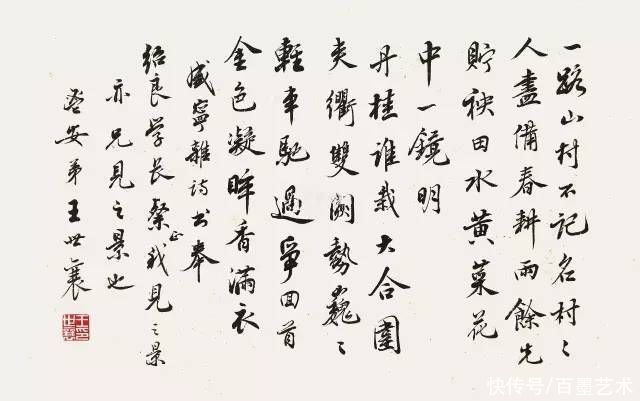 一路山村不记名村〻
人盡備春耕雨餘先
貯秧田水黄菜花
中一鏡明
丹桂谁栽大合圍
夾衢雙闕勢巍〻
輕車馳過爭回首
金色凝眸香滿衣
咸寧雜诗书奉
绍良学长粲正我見之景
亦兄見之景也
鬯安弟王世襄
王印世襄
快传号/百墨艺术